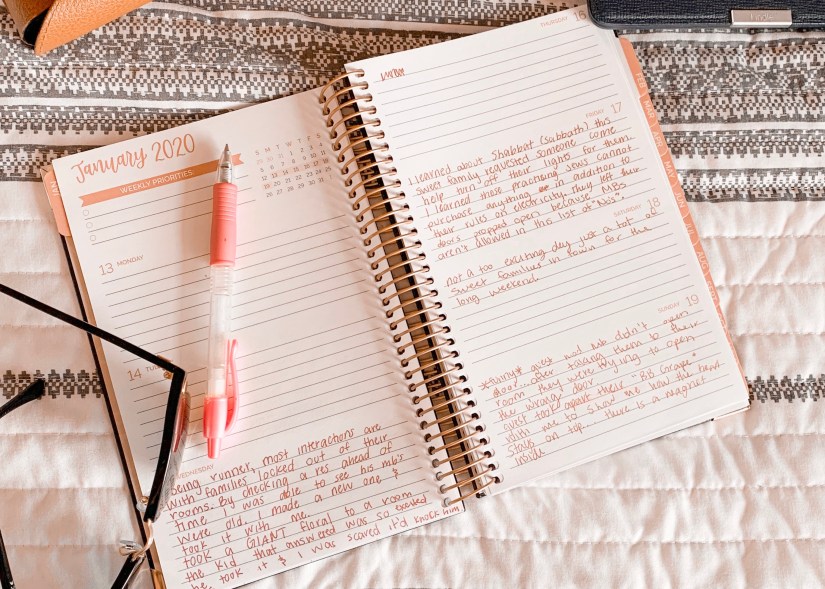 January 2020
WEEKLY PRIORITIES
S M T W T F S
13 MONDAY
14
WEDNESDAY
being runner, most interactions are
with families locked out of their
rooms. By checking a res ahead of
time I was able to see his mb's
were old. I made a new one &
took it with me.
took a GIANT floral to a room
the kid that answered was so excited
he took it & I was scared it'd knock him
THURSDAY 16
FRIDAY 17
I learned about Shabbat (sabbath) this
sweet family requested someone come
help turn off their lights for them.
I learned these practicing Jews cannot
purchase anything in addition to
their rules on electricity. they had their
doors propped open because MBs
aren't allowed in this list of "No's".
SATURDAY 18
not a too exciting day just a lot of
sweet families in town for the
long weekend.
SUNDAY 19
*funny* guest mod mb didn't open
door... after taking them to their
room they were trying to open
the wrong door.
guest took apart their "BB Grape"
with me to show me how the head
stays on top... there is a magnet
inside
FEB
MAR
kindle